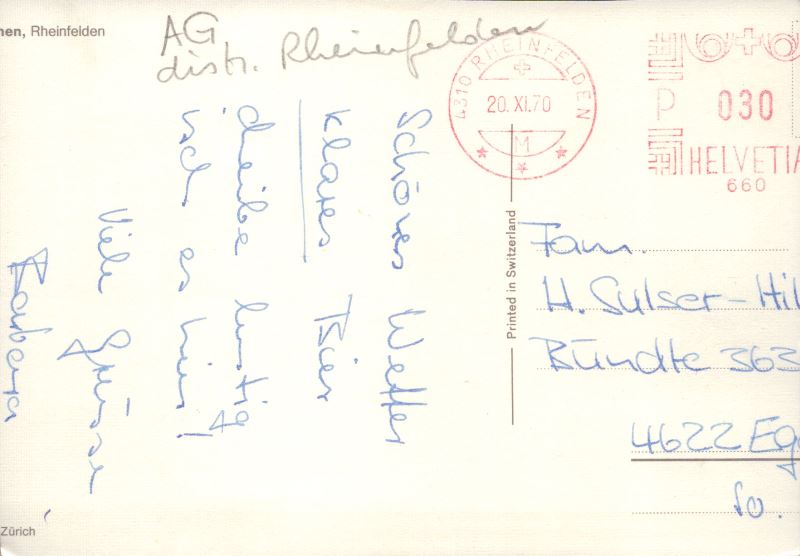 nen, Rheinfelden
AG
distr. Rheinfelden
4310 RHEINFELDEN
20.XI.70
M
P 030
HELVETIA
660
Schönes Wetter
klares Bier
bleibe lustig
es hier!
Viele Grüsse
Barbara
Printed in Switzerland
Fam.
H. Sulser-Hil
Bündte 363
4622 Eg
So.
Zürich